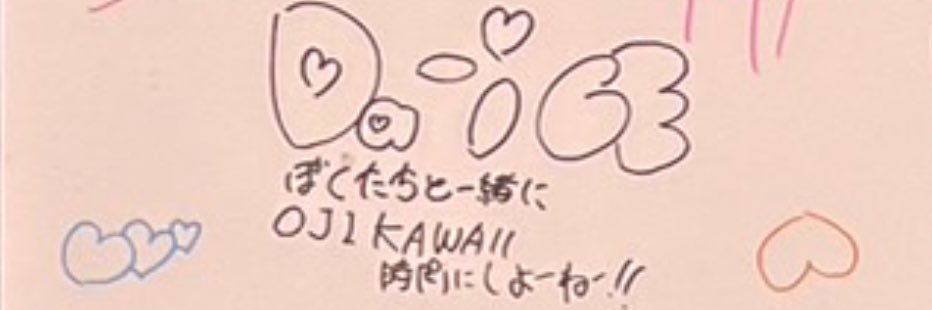 Da-iCE
ぼくたちと一緒に
OJI KAWAII
時代にしよーねー!!